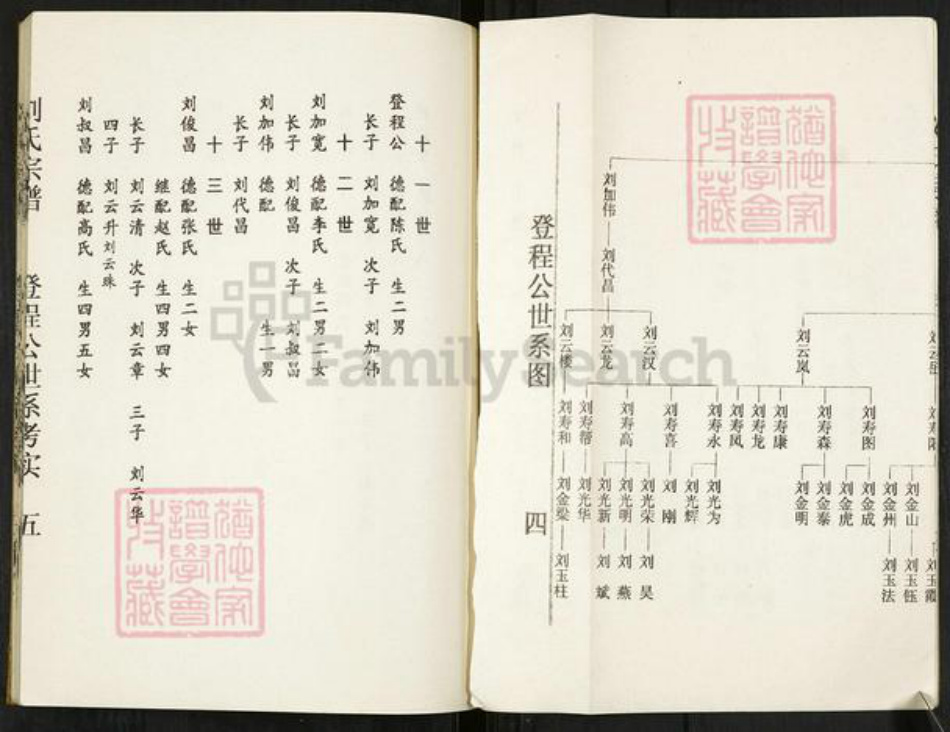 刘加伟
刘代昌
刘云岚
刘云汉
刘云龙
刘云楼
刘寿图
刘寿森
刘寿康
刘寿龙
刘寿凤
刘寿永
刘寿喜
刘寿高
刘寿帮
刘寿和
刘金山
刘金州
刘金成
刘金虎
刘金泰
刘金明
刘光为
刘光辉
刘刚
刘光荣
刘光明
刘光新
刘光华
刘金梁
刘玉霞
刘玉钰
刘玉法
刘昊
刘燕
刘斌
刘玉柱
登程公世系图 四
十一世
登程公 德配陈氏 生二男
长子 刘加宽 次子 刘加伟
十二世
刘加宽 德配李氏 生二男二女
长子 刘俊昌 次子 刘叔昌
刘加伟 德配 生一男
长子 刘代昌
十三世
刘俊昌 德配张氏 生二女
继配赵氏 生四男四女
长子 刘云清 次子 刘云章 三子 刘云华
四子 刘云升 刘云珠
刘叔昌 德配高氏 生四男五女
刘氏宗谱 登程公世系考实 五
FamilySearch
猶他家
譜學會
收藏
猶他家
譜學會
收藏